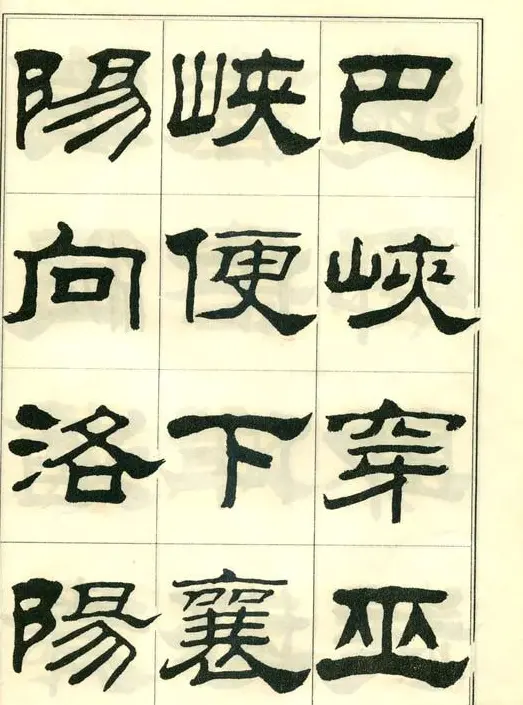 巴峽穿巫
峽便下襄
陽向洛陽